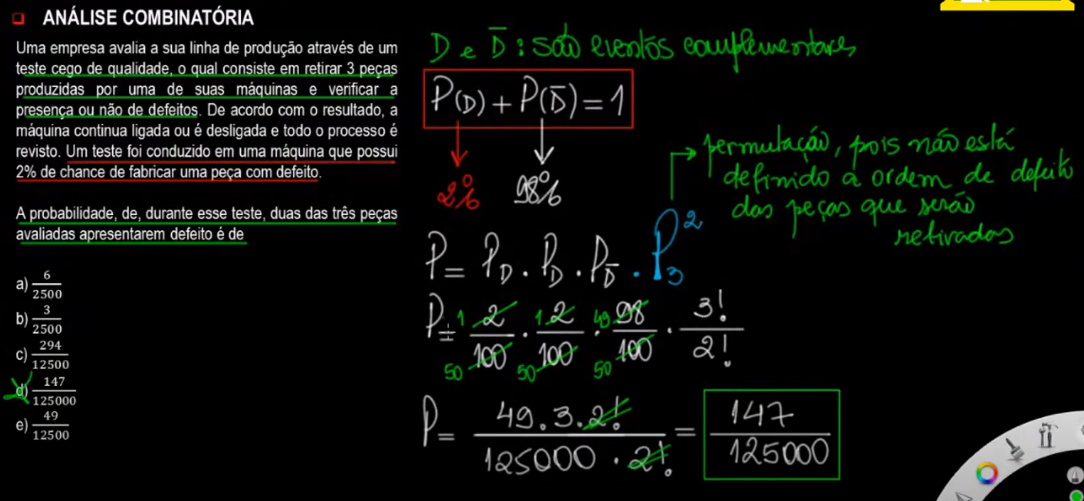 ANÁLISE COMBINATÓRIA
Uma empresa avalia a sua linha de produção através de um
teste cego de qualidade, o qual consiste em retirar 3 peças
produzidas por uma de suas máquinas e verificar a
presença ou não de defeitos. De acordo com o resultado, a
máquina continua ligada ou é desligada e todo o processo é
revisto. Um teste foi conduzido em uma máquina que possui
2% de chance de fabricar uma peça com defeito.
A probabilidade, de, durante esse teste, duas das três peças
avaliadas apresentarem defeito é de
a) 6/2500
b) 3/2500
c) 294/12500
d) 147/125000
e) 49/12500
D e D̅ : são eventos complementares
P(D) + P(D̅) = 1
2% 98%
permutação, pois não está
definido a ordem de defeito
das peças que serão
retiradas
P = P_D . P_D . P_D̅ . P₃²
P = 2/100 . 2/100 . 98/100 . 3!/2!
1 1 49
50 50 50
P = 49.3.2!/125000 . 2! = 147/125000